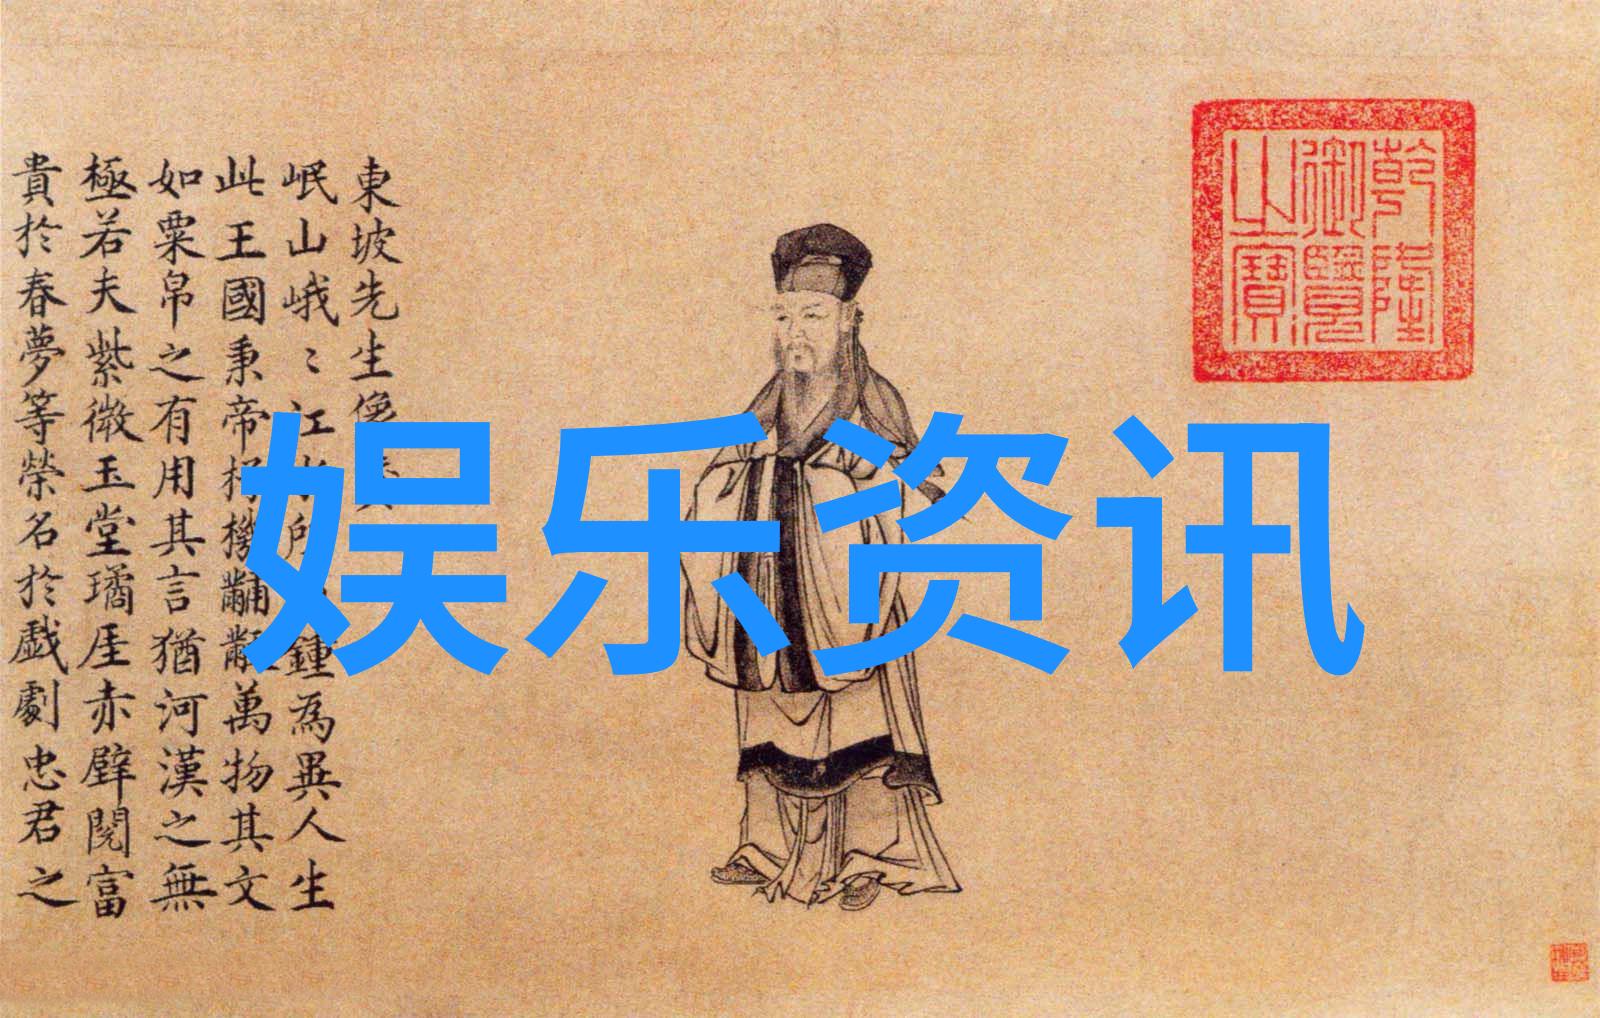 乾隆
御覽
之寶
東坡先生像
岷山峨〻江所鍾為異人生
此王國秉帝杼機黼黻萬物其文
如粟帛之有用其言猶河漢之無
極若夫紫微玉堂璚厓赤壁閱富
貴於春夢等榮名於戲劇忠君之
娱乐资讯